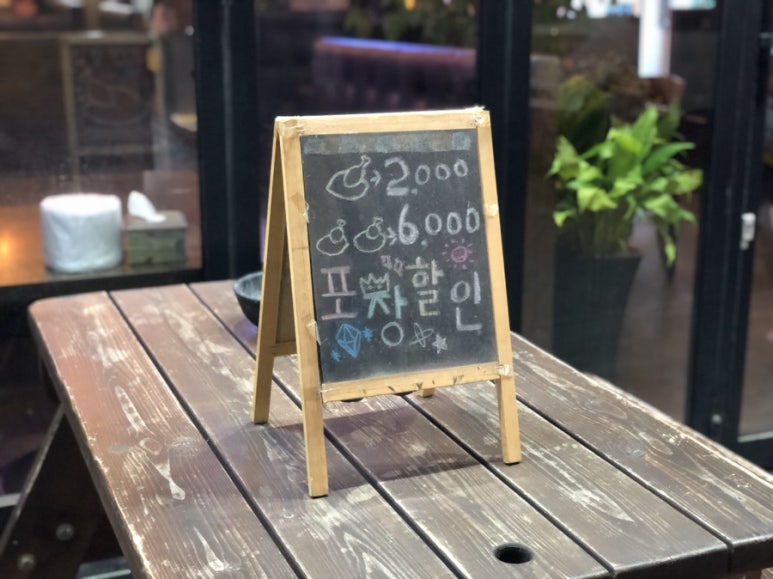 →2.000
→6.000
포장할인